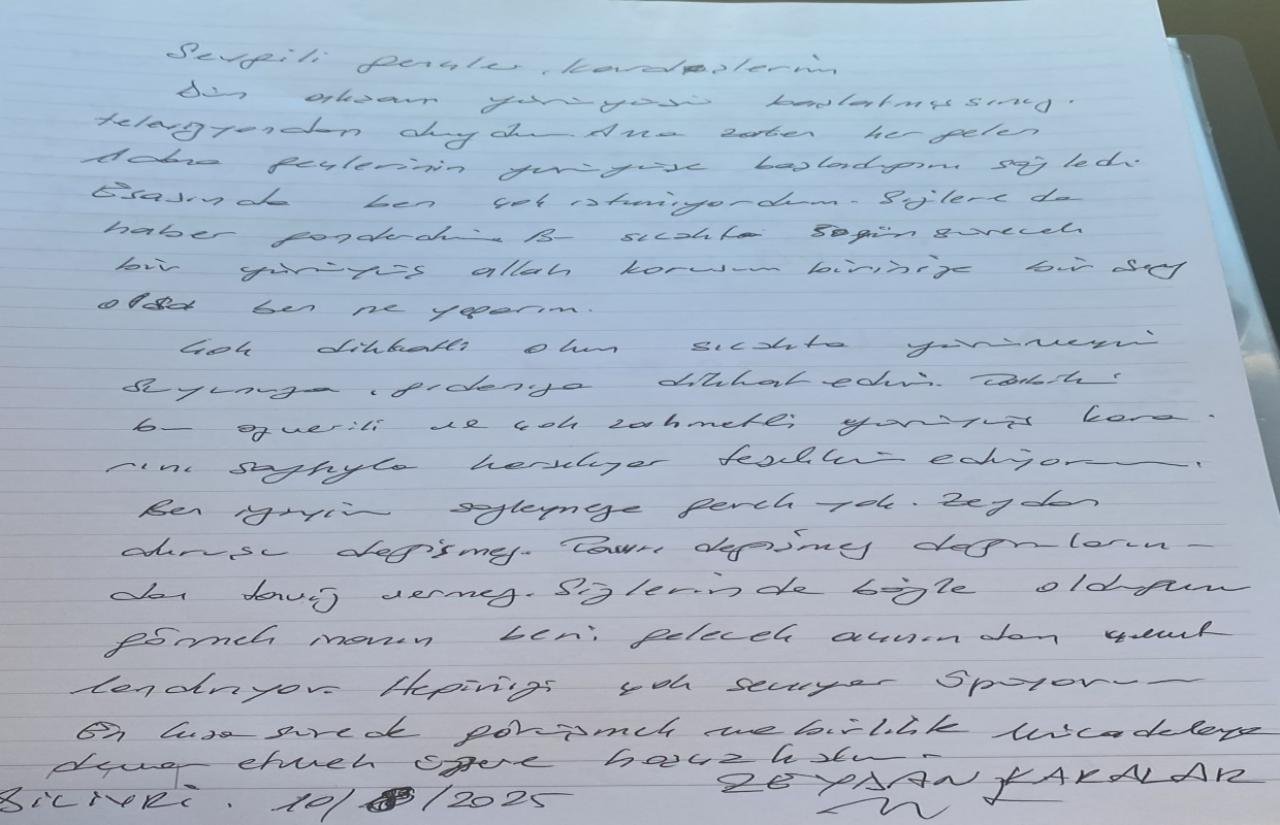 Sevgili gençler, kardeşlerim
Dün akşam yürüyüşü başlatmışsınız.
televizyondan duydum. Ama zaten her gelen
Adana gençlerinin yürüyüşe başladığını söyledi.
Esasında ben çok istemiyordum. Sizlere de
haber gönderdim. Bu sıcakta 50 gün sürecek
bir yürüyüş allah korusun birinize bir şey
olsa ben ne yaparım.
Çok dikkatli olun sıcakta yürümeyin
suyunuza, gıdanıza dikkat edin. Tabiki
bu özverili ve çok zahmetli yürüyüş kara
rını saygıyla karşılıyor teşekkür ediyorum.
Ben iyiyim söylemeye gerek yok. Zeydan
duruşu değişmez. Tavrı değişmez değerlerin-
den taviz vermez. Sizlerin de böyle olduğunu
görmek inanın beni gelecek açısından umut
lendiriyor. Hepinizi çok seviyor öpüyorum
En kısa sürede görüşmek ve birlikte mücadeleye
devam etmek üzere hoşça kalın.
ZEYDAN KARALAR
SİLİVRİ. 10/8/2025